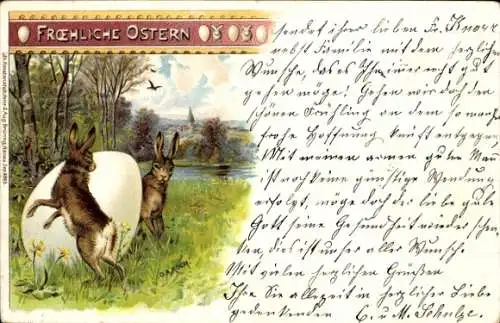 FRŒHLICHE OSTERN
sendet ihrer lieben Fr. Knorr
nebst Familie mit dem herzlichen
Wunsche, das es Ihn immer recht gut
gehen möge! Gehen wir doch den
schönen Frühling an dem so manche
frohe Hoffnung keimt entgegen,
Mit meinem armen guten Man
ist noch keine günstige Wendung
erfolgt, möge doch der liebe gute
Gott seine Gesundheit wieder schen-
ken, dies ist unser aller Wunsche
Mit vielen herzlichen Grüssen
Ihre Sie allezeit in herzlicher Liebe
gedenkenden C. u M. Schulze.